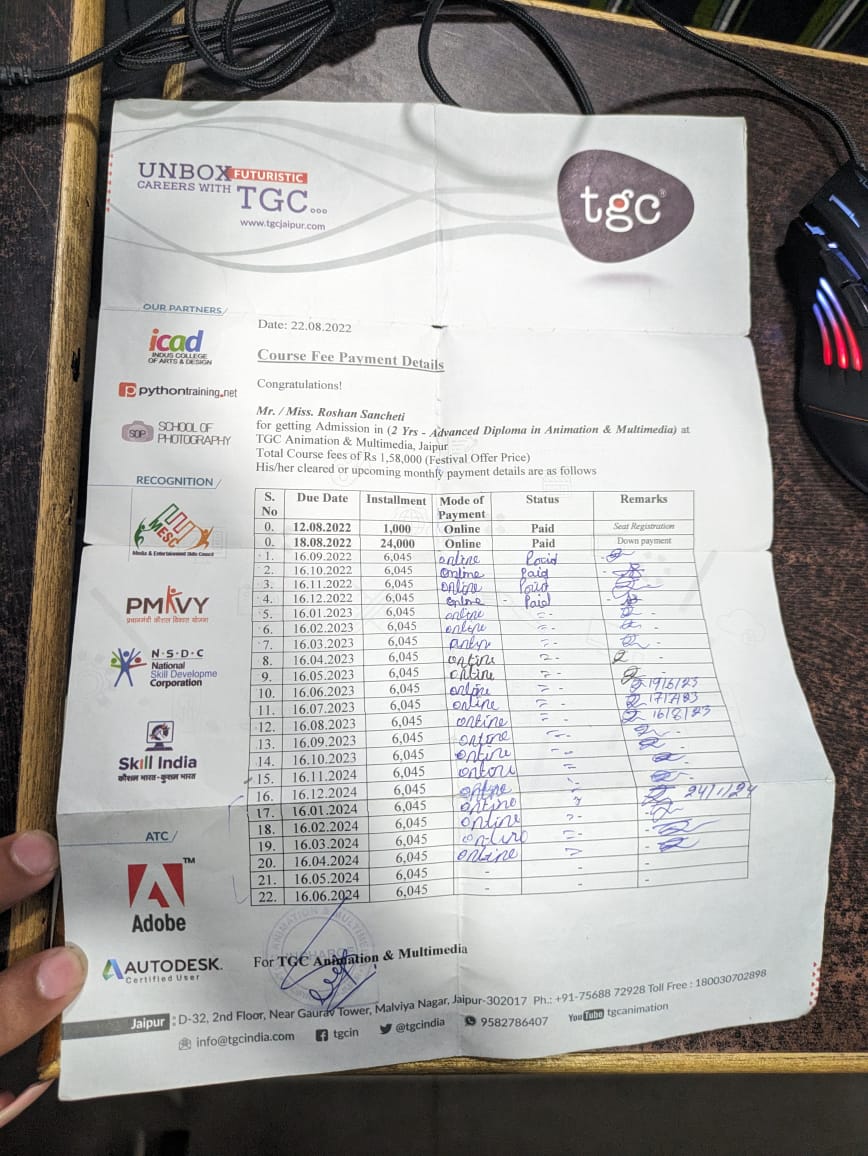 UNBOX FUTURISTIC
CAREERS WITH TGC...
www.tgcjaipur.com
tgc®
OUR PARTNERS/
icad
INDUS COLLEGE
OF ARTS & DESIGN
pythontraining.net
SOP SCHOOL OF
PHOTOGRAPHY
RECOGNITION/
MESC
Media & Entertainment Skills Council
PMKVY
प्रधानमंत्री कौशल विकास योजना
N·S·D·C
National
Skill Developme
Corporation
Skill India
कौशल भारत-कुशल भारत
ATC/
Adobe™
AUTODESK.
Certified User
Date: 22.08.2022
Course Fee Payment Details
Congratulations!
Mr. / Miss. Roshan Sancheti
for getting Admission in (2 Yrs - Advanced Diploma in Animation & Multimedia) at
TGC Animation & Multimedia, Jaipur
Total Course fees of Rs 1,58,000 (Festival Offer Price)
His/her cleared or upcoming monthly payment details are as follows
S. No Due Date Installment Mode of Payment Status Remarks
0. 12.08.2022 1,000 Online Paid Seat Registration
0. 18.08.2022 24,000 Online Paid Down payment
1. 16.09.2022 6,045 online Paid
2. 16.10.2022 6,045 online Paid
3. 16.11.2022 6,045 online Paid
4. 16.12.2022 6,045 online - Paid
5. 16.01.2023 6,045 online =-
6. 16.02.2023 6,045 online =-
7. 16.03.2023 6,045 online =-
8. 16.04.2023 6,045 online =-
9. 16.05.2023 6,045 online =-
10. 16.06.2023 6,045 online =- 19/6/23
11. 16.07.2023 6,045 online =- 17/7/23
12. 16.08.2023 6,045 online =- 16/8/23
13. 16.09.2023 6,045 online =-
14. 16.10.2023 6,045 online =-
15. 16.11.2024 6,045 online =
16. 16.12.2024 6,045 online 24/1/24
17. 16.01.2024 6,045 online
18. 16.02.2024 6,045 online =-
19. 16.03.2024 6,045 online =-
20. 16.04.2024 6,045 online =
21. 16.05.2024 6,045 - - -
22. 16.06.2024 6,045 - - -
For TGC Animation & Multimedia
Jaipur : D-32, 2nd Floor, Near Gaurav Tower, Malviya Nagar, Jaipur-302017 Ph.: +91-75688 72928 Toll Free : 180030702898
info@tgcindia.com tgcin @tgcindia 9582786407 YouTube tgcanimation